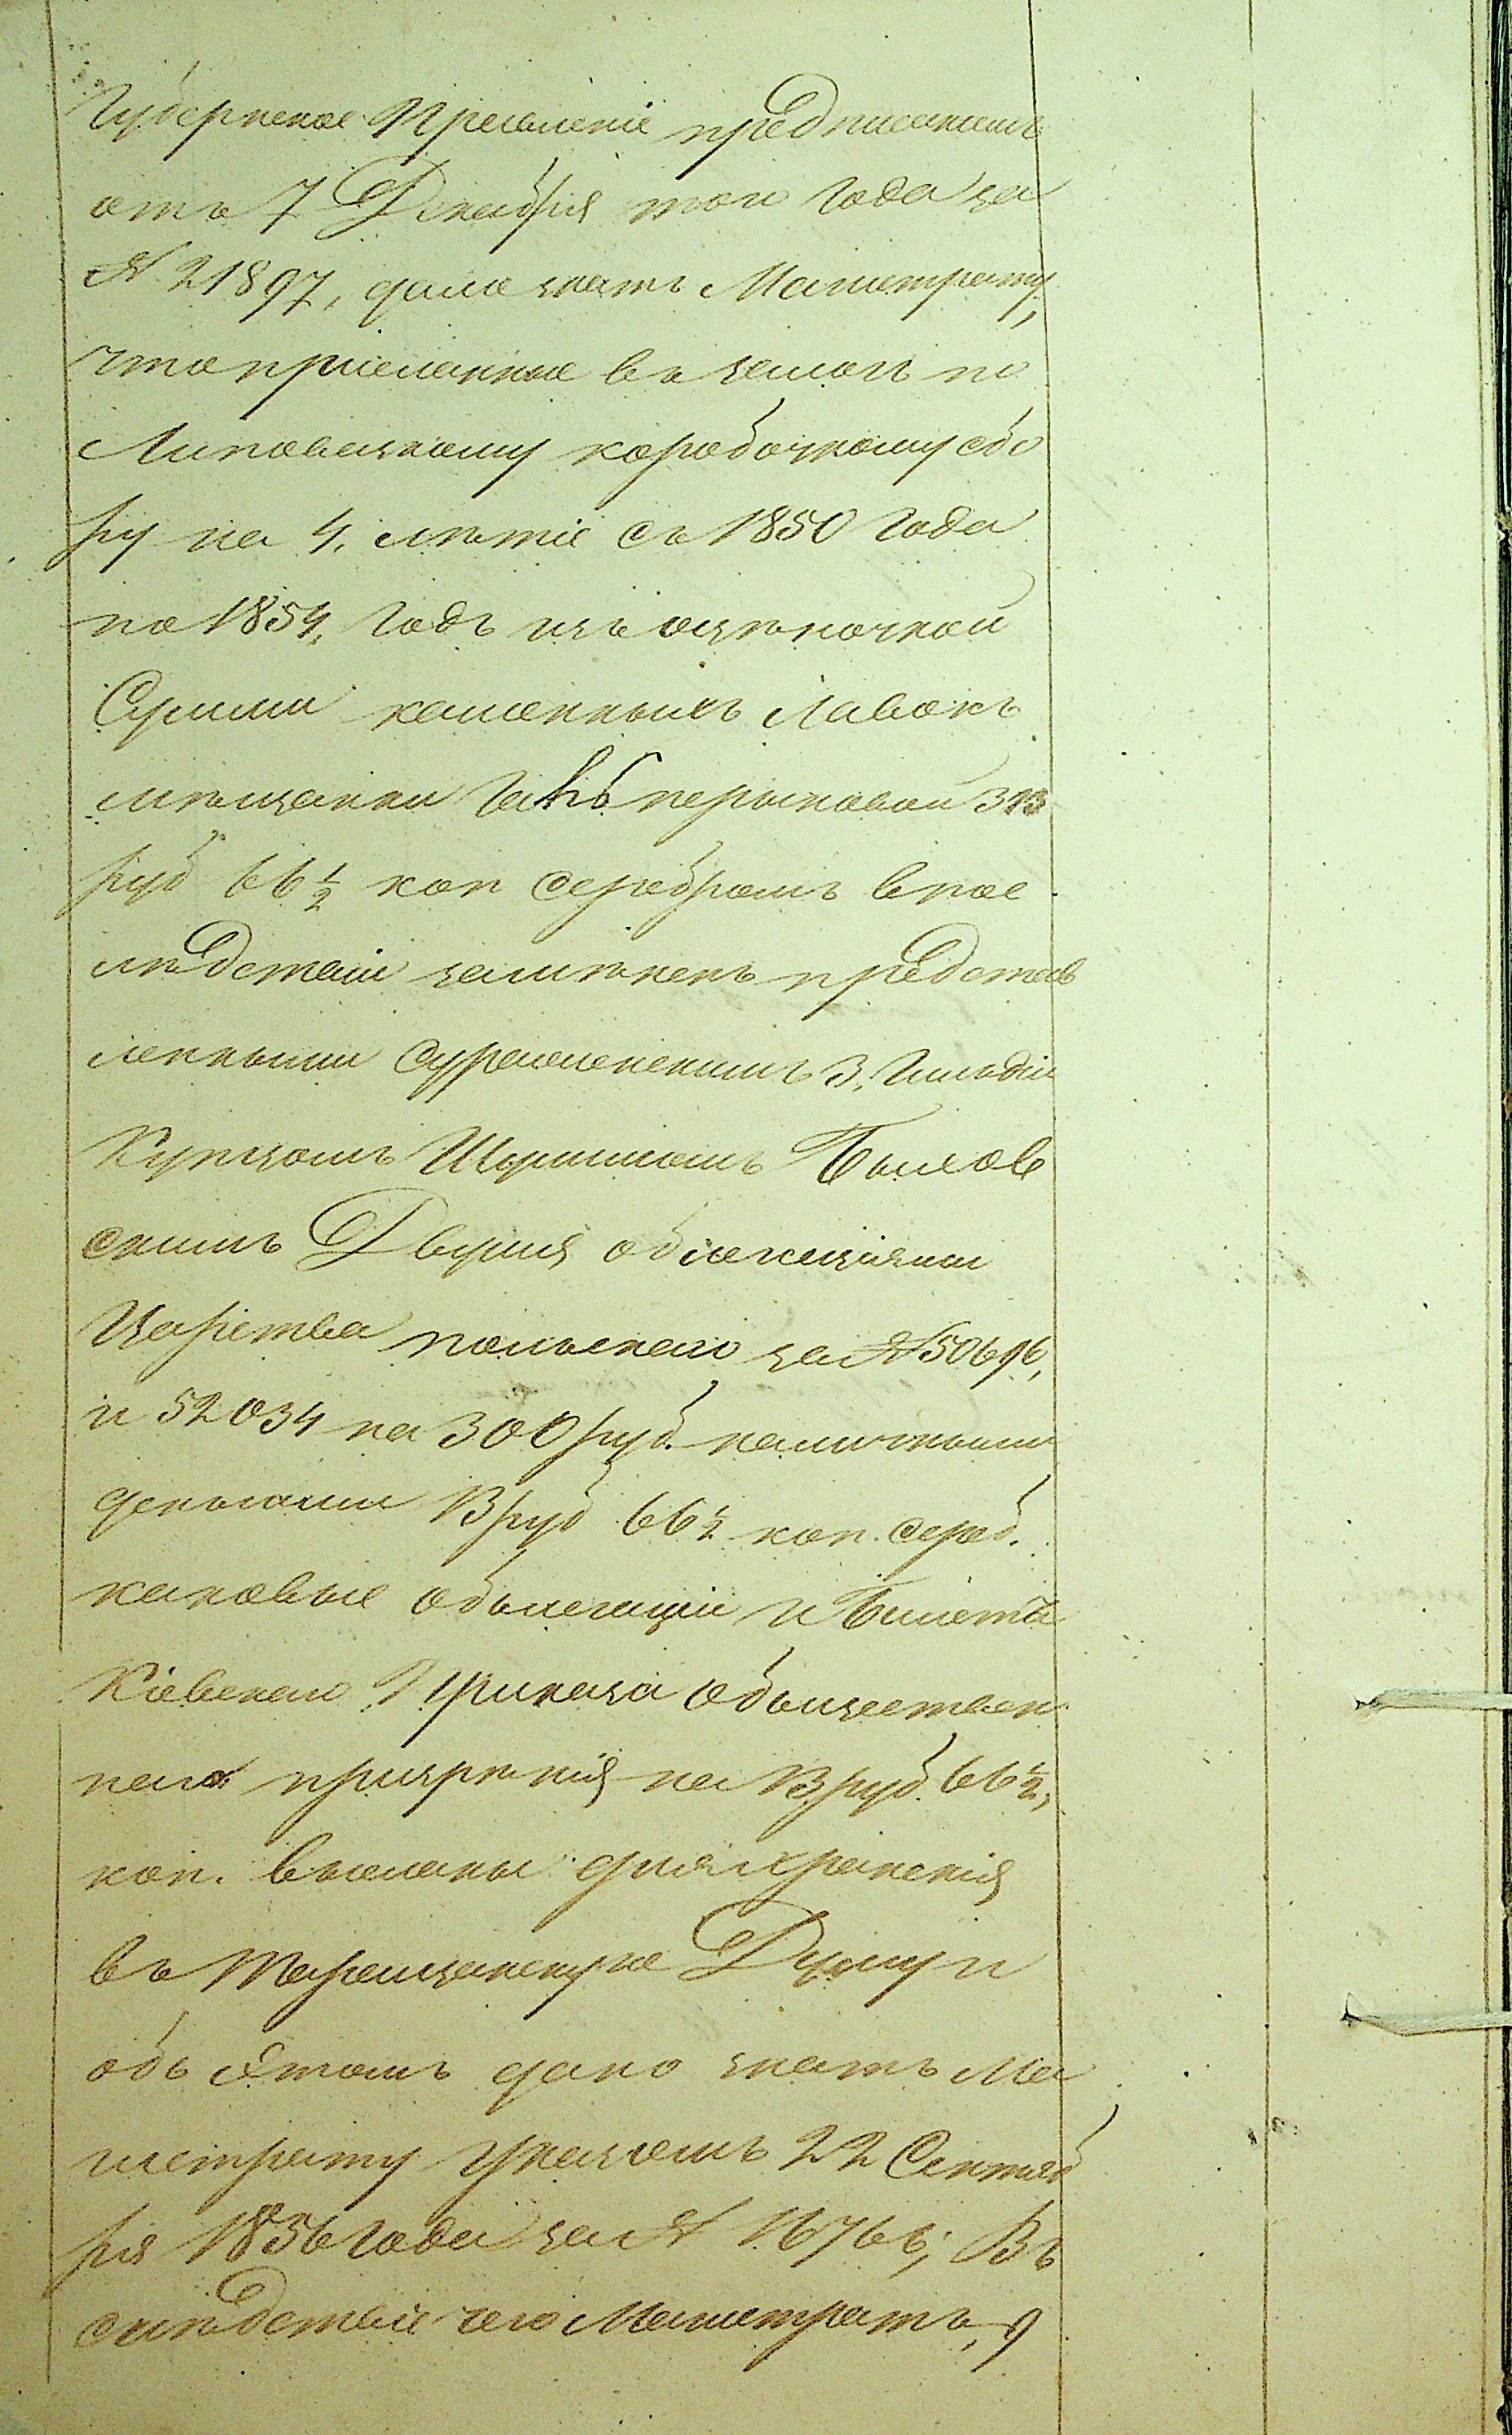 Губернское Правленіе предписаніемъ
отъ 7 Декабря того Года за
№ 21897, дало знать Магистрату,
что присланные въ залогъ по
Липовецкому коробочному сбо
ру на 4. лѣтіе съ 1850 Года
по 1854, Годъ изъ оцѣночной
Суммы каменныхъ лавокъ
мѣщанки 313
руб 66½ коп серебромъ впос
лѣдствіи замѣненъ представ
ленными 3. Гильдіи
Купцомъ Быхов
скимъ Двумя облигаціями
Царства польскаго за № 50696,
и 52034 на 300 руб. наличными
деньгами 13 руб 66½ коп. сереб.
каковые облигаціи и билетъ
Кіевскаго Приказа Общественн
наго призрѣнія на 13 руб. 66½,
коп. высланы для храненія
въ Таращанскую Думу и
объ этомъ дано знать Ма
гистрату Указомъ 22 Сентяб
ря 1856 Года за № 16766; Въ
слѣдствіе чего Магистратъ, у